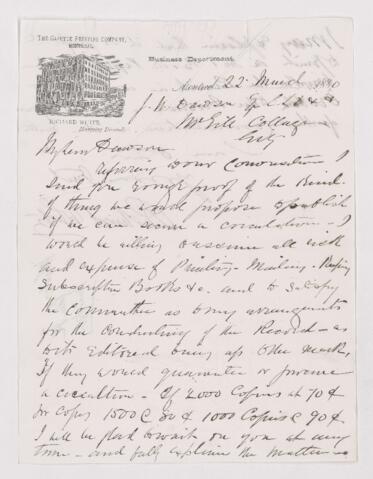 THE GAZETTE PRINTING COMPANY,
MONTREAL.
Business Department.
RICHARD WHITE,
Managing Director.
Montreal 22 March 1890
J. W. Dawson Esq
McGill College
City
My Dear Dawson
Referring to our Conversation I
send you rough proof of the kind
of thing we would propose to publish
if we can secure a circulation. I
would be willing to assume all risk
and expense of Printing - Mailing - Keeping
Subscription Books &c. and to satisfy
the Committee as to any arrangements
for the conducting of the Record - as
to its Editorial being up to the mark,
If they would guarantee or procure
a circulation - of 2000 Copies at 70¢
per copy 1500 @ 80¢ 1000 Copies @ 90¢
I will be glad to wait on you at any
time - and fully explain the matter -